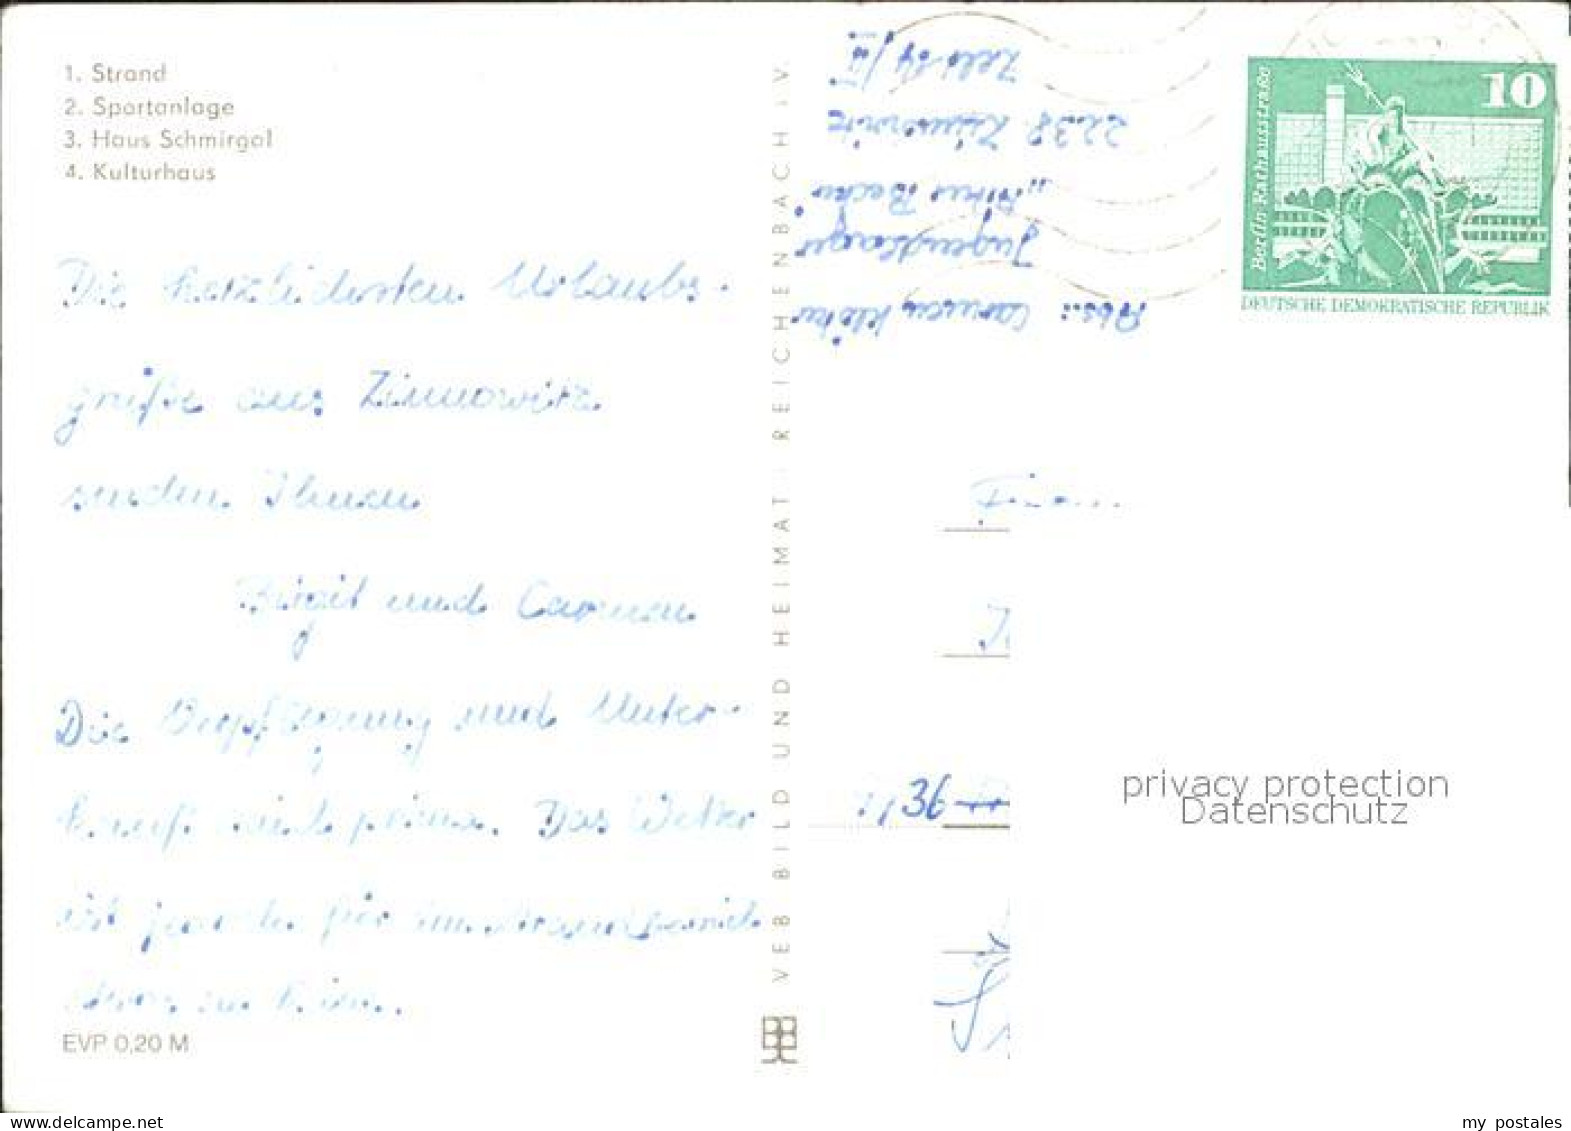 1. Strand
2. Sportanlage
3. Haus Schmirgal
4. Kulturhaus
Die herzlichsten Urlaubs-
grüße aus Zinnowitz
senden Ihnen
Birgit und Carmen
Die Verpflegung und Unter-
kunft sind prima. Das Wetter
ist jedoch für im Strand
zu kühn.
EVP 0,20 M
VEB BILD UND HEIMAT REICHENBACH I V
Abs.: Carmen Klöter
Jugendlager
2238 Zinnowitz
Zelt
10
Berlin · Rathausstraße
DEUTSCHE DEMOKRATISCHE REPUBLIK
36
privacy protection
Datenschutz
my postales